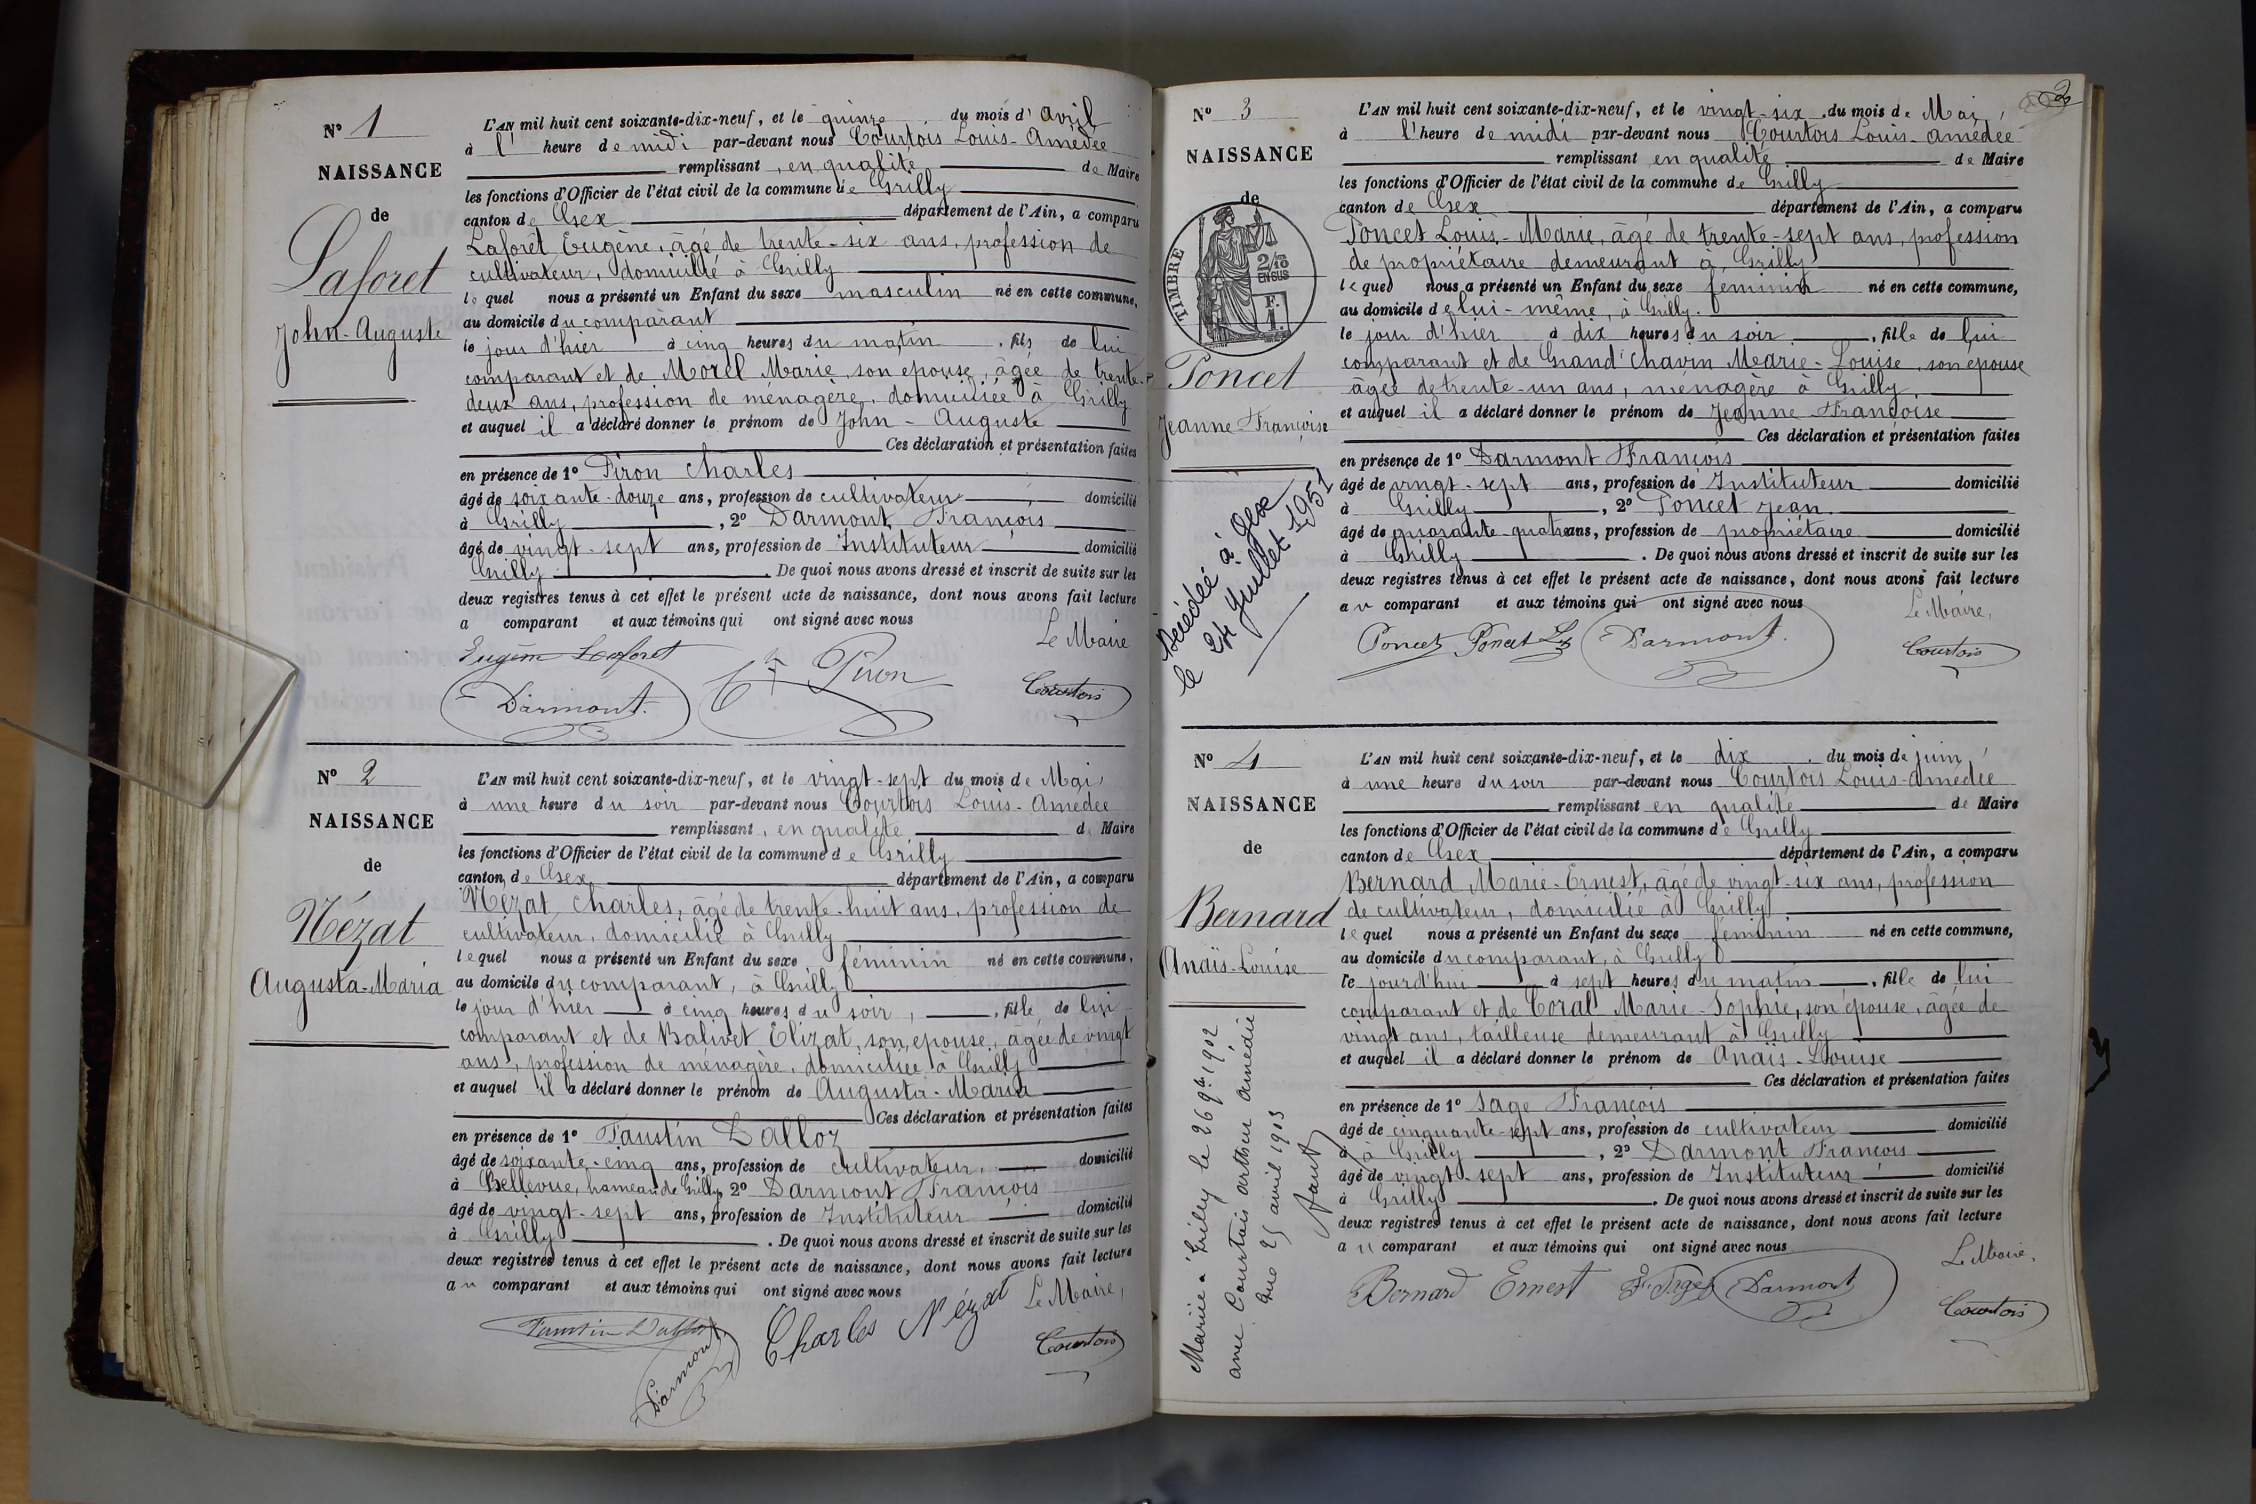 N° 1
NAISSANCE
de
Laforet
John-Auguste
L'AN mil huit cent soixante-dix-neuf, et le quinze du mois d'avril
à l' heure de midi par-devant nous Courtois Louis-Amédée
remplissant, en qualité de Maire
les fonctions d'Officier de l'état civil de la commune de Grilly
canton de Gex département de l'Ain, a comparu
Laforêt Eugène, âgé de trente-six ans, profession de
cultivateur, domicilié à Grilly
lequel nous a présenté un Enfant du sexe masculin né en cette commune,
au domicile du comparant
le jour d'hier à cinq heures du matin, fils de lui
comparant et de Morel Marie, son épouse, âgée de trente-
deux ans, profession de ménagère, domiciliée à Grilly
et auquel il a déclaré donner le prénom de John-Auguste
Ces déclaration et présentation faites
en présence de 1° Piron Charles
âgé de soixante-douze ans, profession de cultivateur domicilié
à Grilly, 2° Darmont François
âgé de vingt-sept ans, profession de Instituteur domicilié
Grilly. De quoi nous avons dressé et inscrit de suite sur les
deux registres tenus à cet effet le présent acte de naissance, dont nous avons fait lecture
a comparant et aux témoins qui ont signé avec nous
Le Maire
Eugène Laforet
Piron
Darmont.
Courtois
N° 2
NAISSANCE
de
Nézat
Augusta-Maria
L'AN mil huit cent soixante-dix-neuf, et le vingt-sept du mois de Mai
à une heure du soir par-devant nous Courtois Louis-Amédée
remplissant, en qualité de Maire
les fonctions d'Officier de l'état civil de la commune de Grilly
canton de Gex département de l'Ain, a comparu
Nézat Charles, âgé de trente-huit ans, profession de
cultivateur, domicilié à Grilly
lequel nous a présenté un Enfant du sexe féminin né en cette commune,
au domicile du comparant, à Grilly
le jour d'hier à cinq heures du soir, fille de lui
comparant et de Balivet Elizat, son épouse, âgée de vingt
ans, profession de ménagère, domiciliée à Grilly
et auquel il a déclaré donner le prénom de Augusta-Maria
Ces déclaration et présentation faites
en présence de 1° Faustin Dalloz
âgé de soixante-cinq ans, profession de cultivateur, domicilié
à Bellevue, hameau de Grilly, 2° Darmont François
âgé de vingt-sept ans, profession de Instituteur domicilié
à Grilly. De quoi nous avons dressé et inscrit de suite sur les
deux registres tenus à cet effet le présent acte de naissance, dont nous avons fait lecture
au comparant et aux témoins qui ont signé avec nous
Le Maire,
Faustin Dalloz
Charles Nézat
Darmont
Courtois
2
N° 3
NAISSANCE
de
TIMBRE
2/10
EN SUS
F.
1.
Poncet
Jeanne-Françoise
Décédée à Gex
le 24 Juillet 1951
L'AN mil huit cent soixante-dix-neuf, et le vingt-six du mois de Mai,
à l'heure de midi par-devant nous Courtois Louis-Amédée
remplissant en qualité de Maire
les fonctions d'Officier de l'état civil de la commune de Grilly
canton de Gex département de l'Ain, a comparu
Poncet Louis-Marie, âgé de trente-sept ans, profession
de propriétaire demeurant à Grilly
lequel nous a présenté un Enfant du sexe féminin né en cette commune,
au domicile de lui-même, à Grilly.
le jour d'hier à dix heures du soir, fille de lui
comparant et de Grand'Chavin Marie-Louise, son épouse
âgée de trente-un ans, ménagère à Grilly
et auquel il a déclaré donner le prénom de Jeanne Françoise
Ces déclaration et présentation faites
en présence de 1° Darmont François
âgé de vingt-sept ans, profession de Instituteur domicilié
à Grilly, 2° Poncet Jean
âgé de quarante-quatre ans, profession de propriétaire domicilié
à Grilly. De quoi nous avons dressé et inscrit de suite sur les
deux registres tenus à cet effet le présent acte de naissance, dont nous avons fait lecture
au comparant et aux témoins qui ont signé avec nous
Le Maire,
Poncet Poncet Ls Darmont.
Courtois
N° 4
NAISSANCE
de
Bernard
Anaïs-Louise
Mariée à Grilly le 26 9bre 1902
avec Courtois arthur amédée
25 avril 1903
L'AN mil huit cent soixante-dix-neuf, et le dix du mois de juin,
à une heure du soir par-devant nous Courtois Louis-Amédée
remplissant en qualité de Maire
les fonctions d'Officier de l'état civil de la commune de Grilly
canton de Gex département de l'Ain, a comparu
Bernard Marie-Ernest, âgé de vingt-six ans, profession
de cultivateur, domicilié à Grilly
lequel nous a présenté un Enfant du sexe féminin né en cette commune,
au domicile du comparant, à Grilly
le jourd'hui à sept heures du matin, fille de lui
comparant et de Coral Marie-Sophie, son épouse, âgée de
vingt ans, tailleuse demeurant à Grilly
et auquel il a déclaré donner le prénom de Anaïs-Louise
Ces déclaration et présentation faites
en présence de 1° Sage François
âgé de cinquante-sept ans, profession de cultivateur domicilié
à Grilly, 2° Darmont François
âgé de vingt-sept ans, profession de Instituteur domicilié
à Grilly. De quoi nous avons dressé et inscrit de suite sur les
deux registres tenus à cet effet le présent acte de naissance, dont nous avons fait lecture
au comparant et aux témoins qui ont signé avec nous
Le Maire,
Bernard Ernest F. Sage Darmont
Courtois